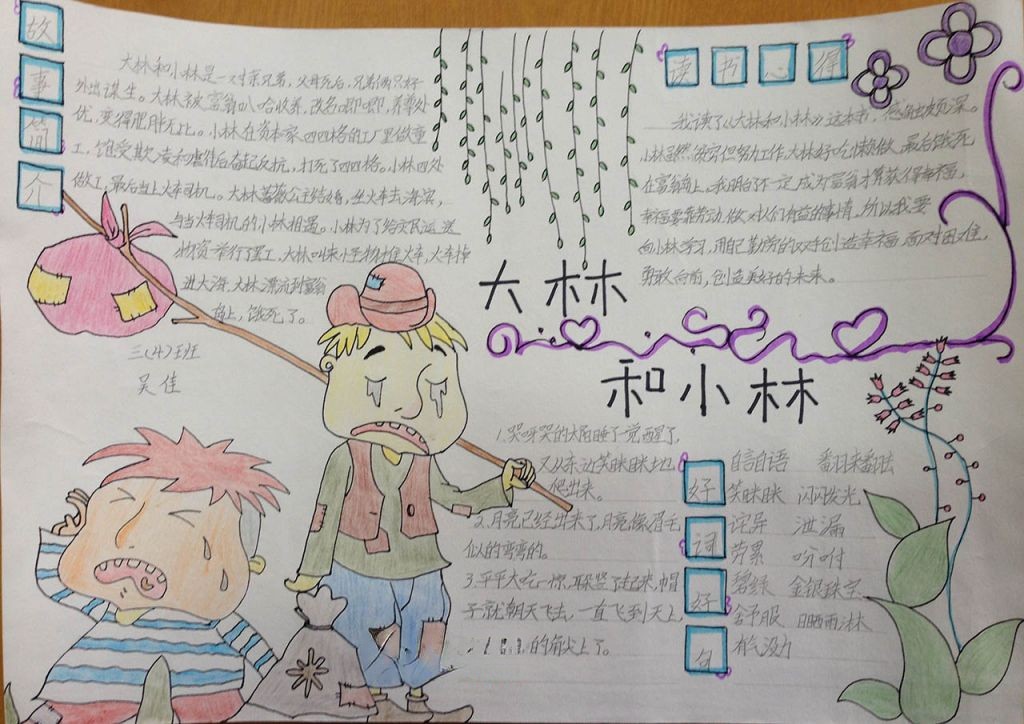 故事简介
大林和小林是一对亲兄弟，父母死后，兄弟俩只好
外出谋生。大林被富翁叭哈收养，改名唧唧，养尊处
优，变得肥胖无比。小林在资本家四四格的工厂里做童
工，饱受欺凌和虐待后奋起反抗，打死了四四格。小林四处
做工，最后当上火车司机。大林蔷薇公主结婚，坐火车去海滨，
与当火车司机的小林相遇。小林为了给灾民运送
物资举行了罢工，大林叫来小怪物推火车，火车掉
进大海，大林漂流到富翁
岛上，饿死了。
三(4)班
吴佳
读书心得
我读了《大林和小林》这本书，感触颇深。
小林虽然贫穷但努力工作，大林好吃懒做，最后饿死
在富翁岛上。我明白了不一定成为富翁才算获得幸福，
幸福要靠劳动，做对人们有益的事情，所以我要
向小林学习，用自己勤劳的双手创造幸福，面对困难，
勇敢向前，创造美好的未来。
大林
和小林
好词好句
1.哭呀哭的太阳睡了一觉醒了，
又从东边笑眯眯地
爬出来。
2.月亮已经出来了，月亮像眉毛
似的弯弯的。
3.平平大吃一惊，耳朵竖了起来，帽
子就朝天飞去，一直飞到天上，
的角尖上了。
自言自语 翻来翻去
笑眯眯 闪闪发光
诧异 泄漏
劳累 吩咐
碧绿 金银珠宝
舒服 日晒雨淋
有气没力